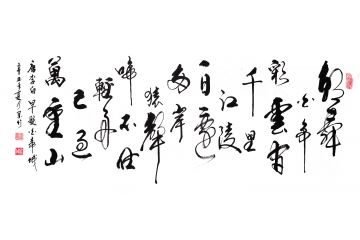 朝辭
白帝
彩雲間
千里
江陵
一日還
兩岸
猿聲
啼
不住
輕舟
已過
萬重山
唐李白早發白帝城
辛丑年夏月